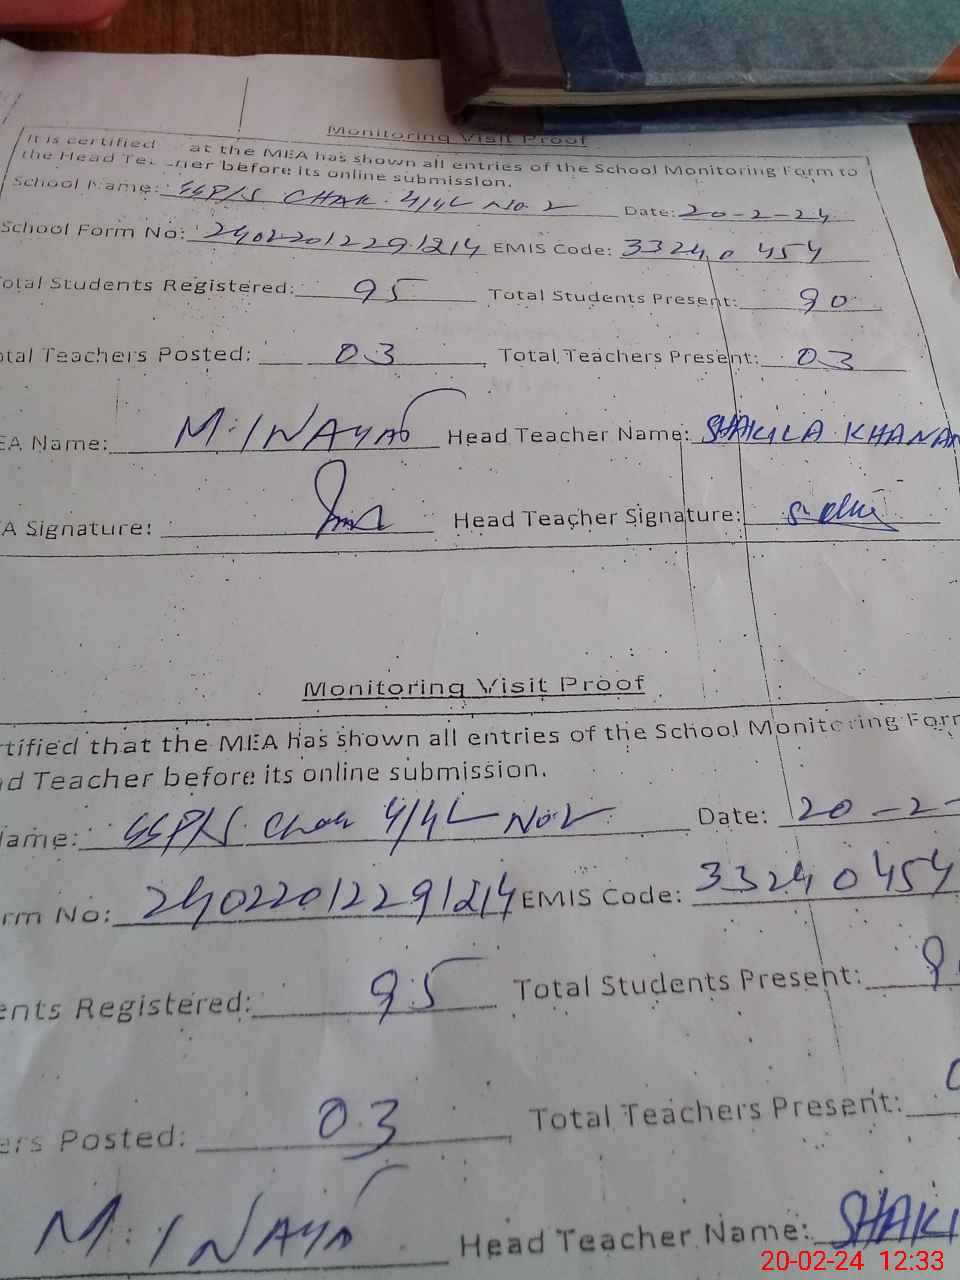 Monitoring Visit Proof
It is certified at the MEA has shown all entries of the School Monitoring Form to
the Head Te. ner before its online submission.
School Name: GGP/S CHAK. 4/4L No. 2 Date: 20-2-24
School Form No: 24022012291214 EMIS Code: 33240454
otal Students Registered: 95 Total Students Present: 90
otal Teachers Posted: 03 Total Teachers Present: 03
EA Name: M. INAYAT Head Teacher Name: SHAKILA KHANAM
A Signature: Head Teacher Signature:
Monitoring Visit Proof
rtified that the MEA has shown all entries of the School Monitoring Form
ad Teacher before its online submission.
Name: GGP/S. Chak 4/4L No.2 Date: 20-2-
rm No: 24022012291214 EMIS Code: 33240454
ents Registered: 95 Total Students Present: 9
ers Posted: 0.3 Total Teachers Present: 0
M. INAYAT Head Teacher Name: SHAKI
20-02-24 12:33